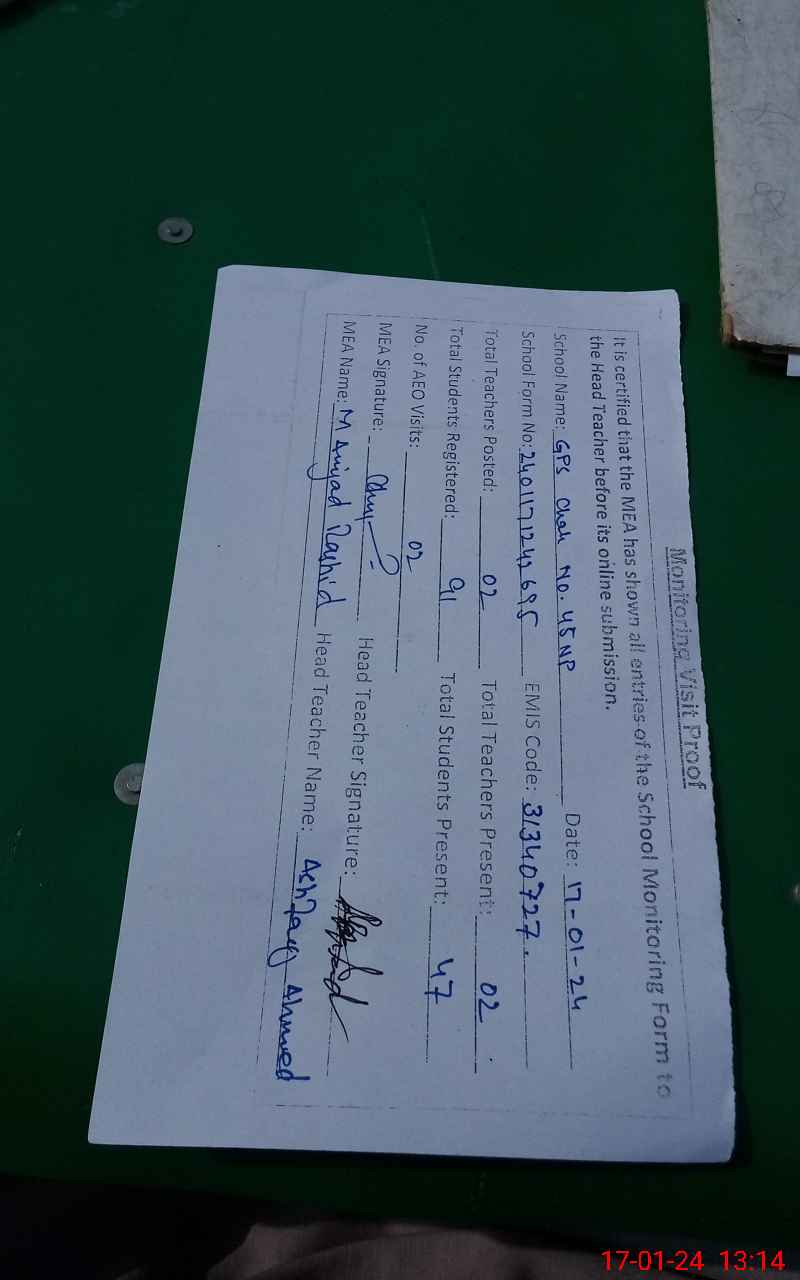 Monitoring Visit Proof
It is certified that the MEA has shown all entries of the School Monitoring Form to
the Head Teacher before its online submission.
School Name: GPS Chak No. 45 NP Date: 17-01-24
School Form No: EMIS Code: 31340727.
Total Teachers Posted: 02 Total Teachers Present: 02
Total Students Registered: 91 Total Students Present: 47
No. of AEO Visits: 02
MEA Signature: Head Teacher Signature:
MEA Name: M Amjad Rashid Head Teacher Name: Ahmed
17-01-24 13:14